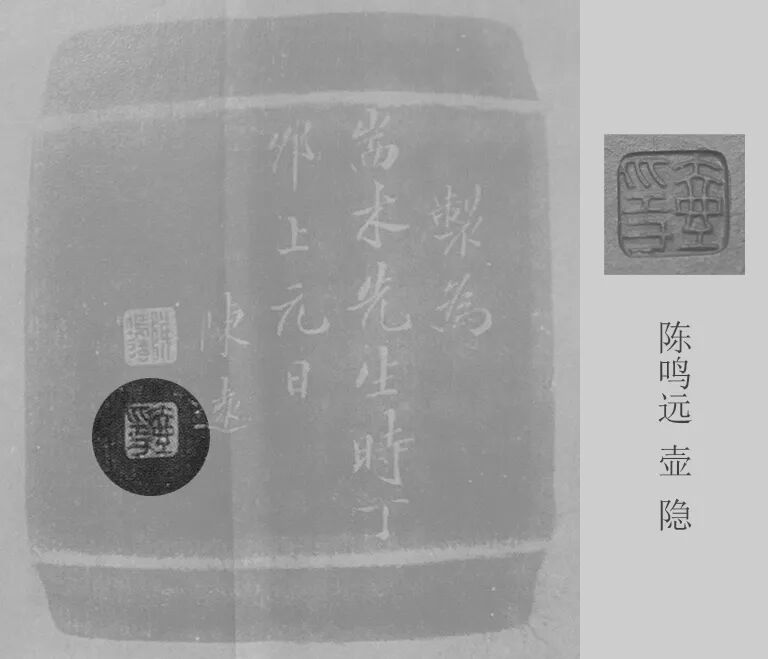 製為
耑木先生時丁
卯上元日
陳遠
陈鸣远 壶 隐